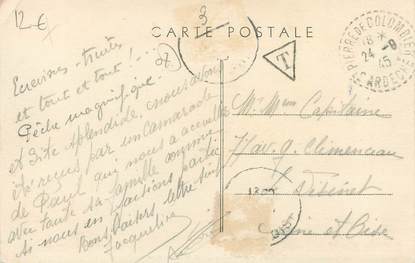 12€
3
07
CARTE POSTALE
T
PIERRE DE COLOMBIER
18 *
24 - 8
45
(ARDECHE)
Ecrevisses - truites
et tout et tout ! ...
Pêche magnifique -
et Site splendide, nous avons
été reçus par un camarade
de Paul qui nous a accueillis
avec toute sa famille comme
si nous en faisions partie
Bons baisers, lettre suit
Jacqueline
Mr Mme Capitaine
77 av. G. Clémenceau
Le Vésinet
Seine et Oise